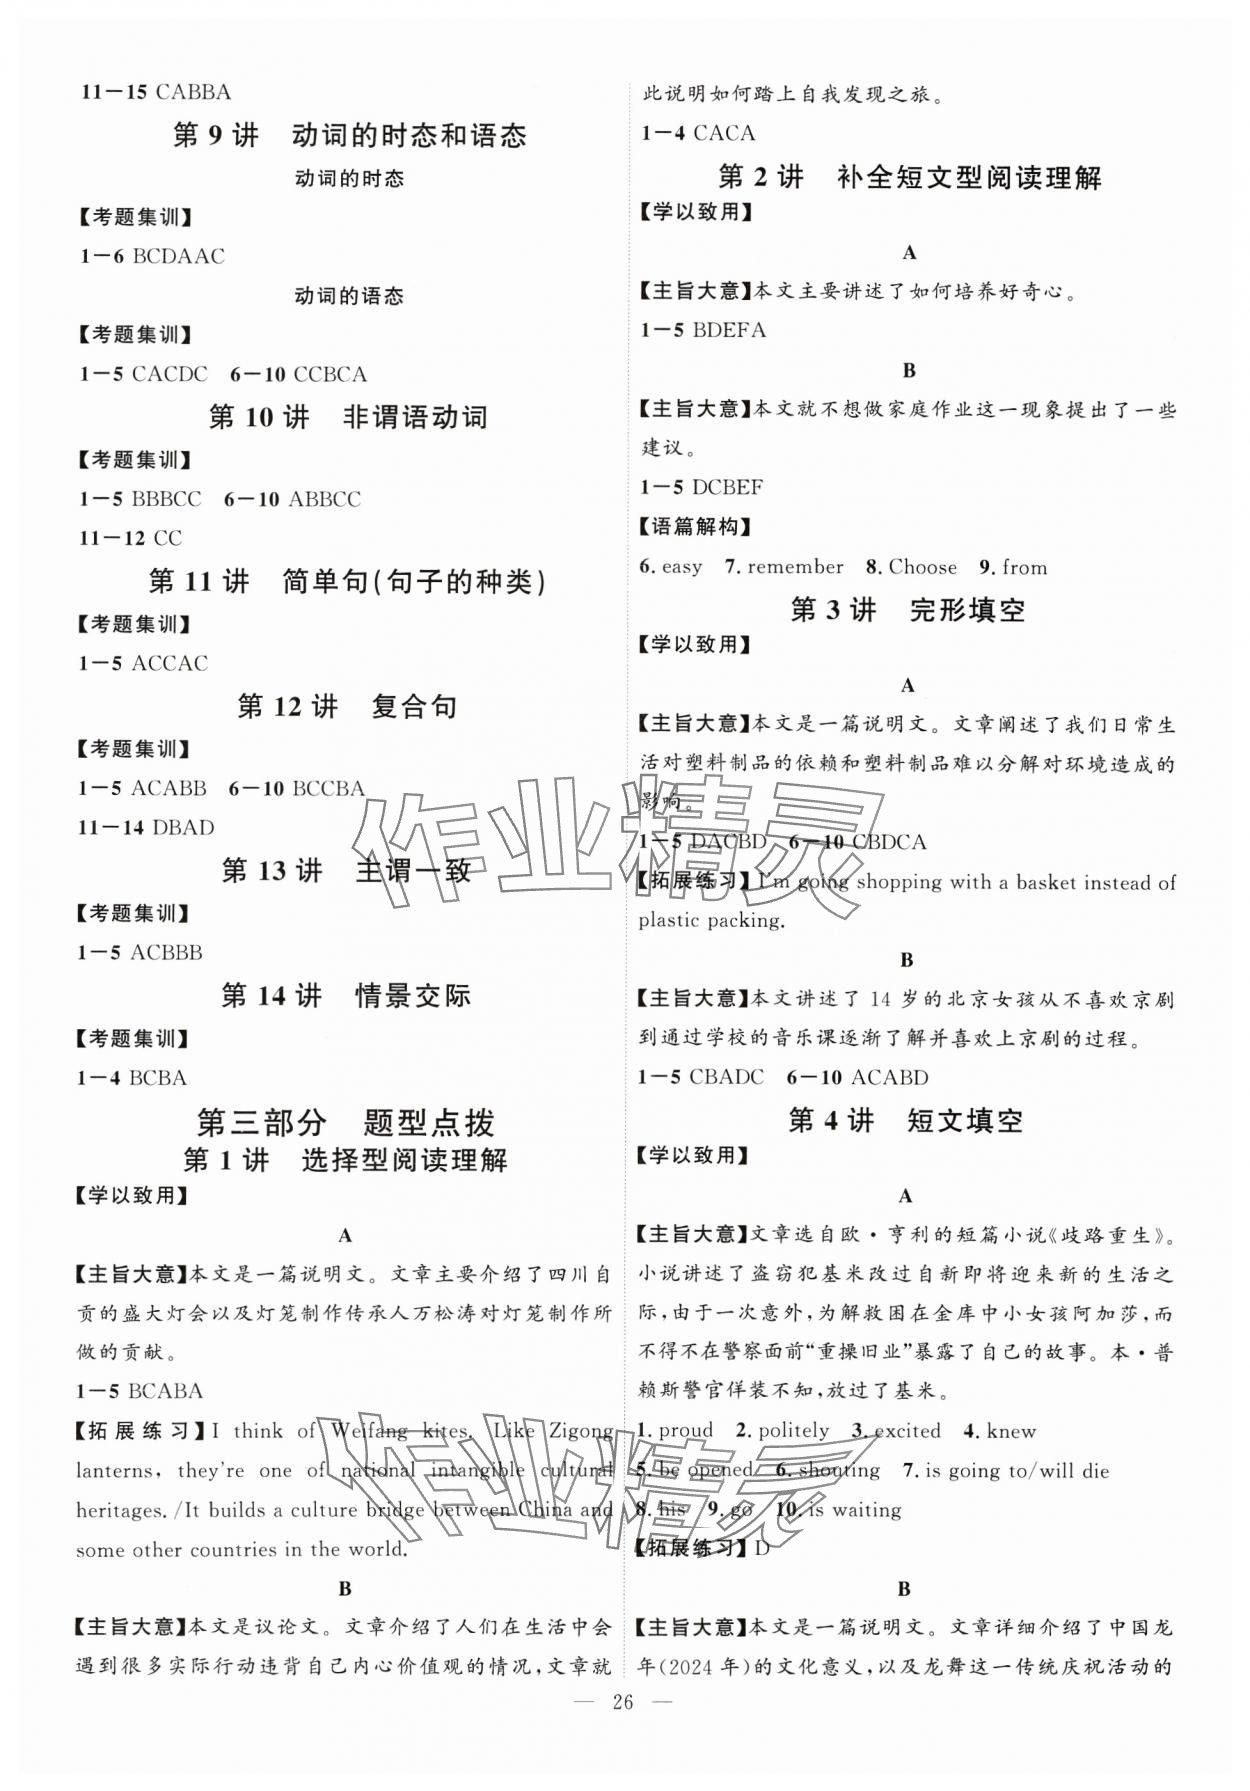 11－15 CABBA
第 9 讲　动词的时态和语态
动词的时态
【考题集训】
1－6 BCDAAC
动词的语态
【考题集训】
1－5 CACDC　6－10 CCBCA
第 10 讲　非谓语动词
【考题集训】
1－5 BBBCC　6－10 ABBCC
11－12 CC
第 11 讲　简单句(句子的种类)
【考题集训】
1－5 ACCAC
第 12 讲　复合句
【考题集训】
1－5 ACABB　6－10 BCCBA
11－14 DBAD
第 13 讲　主谓一致
【考题集训】
1－5 ACBBB
第 14 讲　情景交际
【考题集训】
1－4 BCBA
第三部分　题型点拨
第 1 讲　选择型阅读理解
【学以致用】
A
【主旨大意】本文是一篇说明文。文章主要介绍了四川自
贡的盛大灯会以及灯笼制作传承人万松涛对灯笼制作所
做的贡献。
1－5 BCABA
【拓展练习】I think of Weifang kites. Like Zigong
lanterns, they're one of national intangible cultural
heritages. /It builds a culture bridge between China and
some other countries in the world.
B
【主旨大意】本文是议论文。文章介绍了人们在生活中会
遇到很多实际行动违背自己内心价值观的情况，文章就
此说明如何踏上自我发现之旅。
1－4 CACA
第 2 讲　补全短文型阅读理解
【学以致用】
A
【主旨大意】本文主要讲述了如何培养好奇心。
1－5 BDEFA
B
【主旨大意】本文就不想做家庭作业这一现象提出了一些
建议。
1－5 DCBEF
【语篇解构】
6. easy　7. remember　8. Choose　9. from
第 3 讲　完形填空
【学以致用】
A
【主旨大意】本文是一篇说明文。文章阐述了我们日常生
活对塑料制品的依赖和塑料制品难以分解对环境造成的
影响。
1－5 DACBD　6－10 CBDCA
【拓展练习】I'm going shopping with a basket instead of
plastic packing.
B
【主旨大意】本文讲述了 14 岁的北京女孩从不喜欢京剧
到通过学校的音乐课逐渐了解并喜欢上京剧的过程。
1－5 CBADC　6－10 ACABD
第 4 讲　短文填空
【学以致用】
A
【主旨大意】文章选自欧·亨利的短篇小说《歧路重生》。
小说讲述了盗窃犯基米改过自新即将迎来新的生活之
际，由于一次意外，为解救困在金库中小女孩阿加莎，而
不得不在警察面前“重操旧业”暴露了自己的故事。本·普
赖斯警官佯装不知，放过了基米。
1. proud　2. politely　3. excited　4. knew
5. be opened　6. shouting　7. is going to/will die
8. his　9. go　10. is waiting
【拓展练习】D
B
【主旨大意】本文是一篇说明文。文章详细介绍了中国龙
年(2024 年)的文化意义，以及龙舞这一传统庆祝活动的
— 26 —
作业精灵
作业精灵